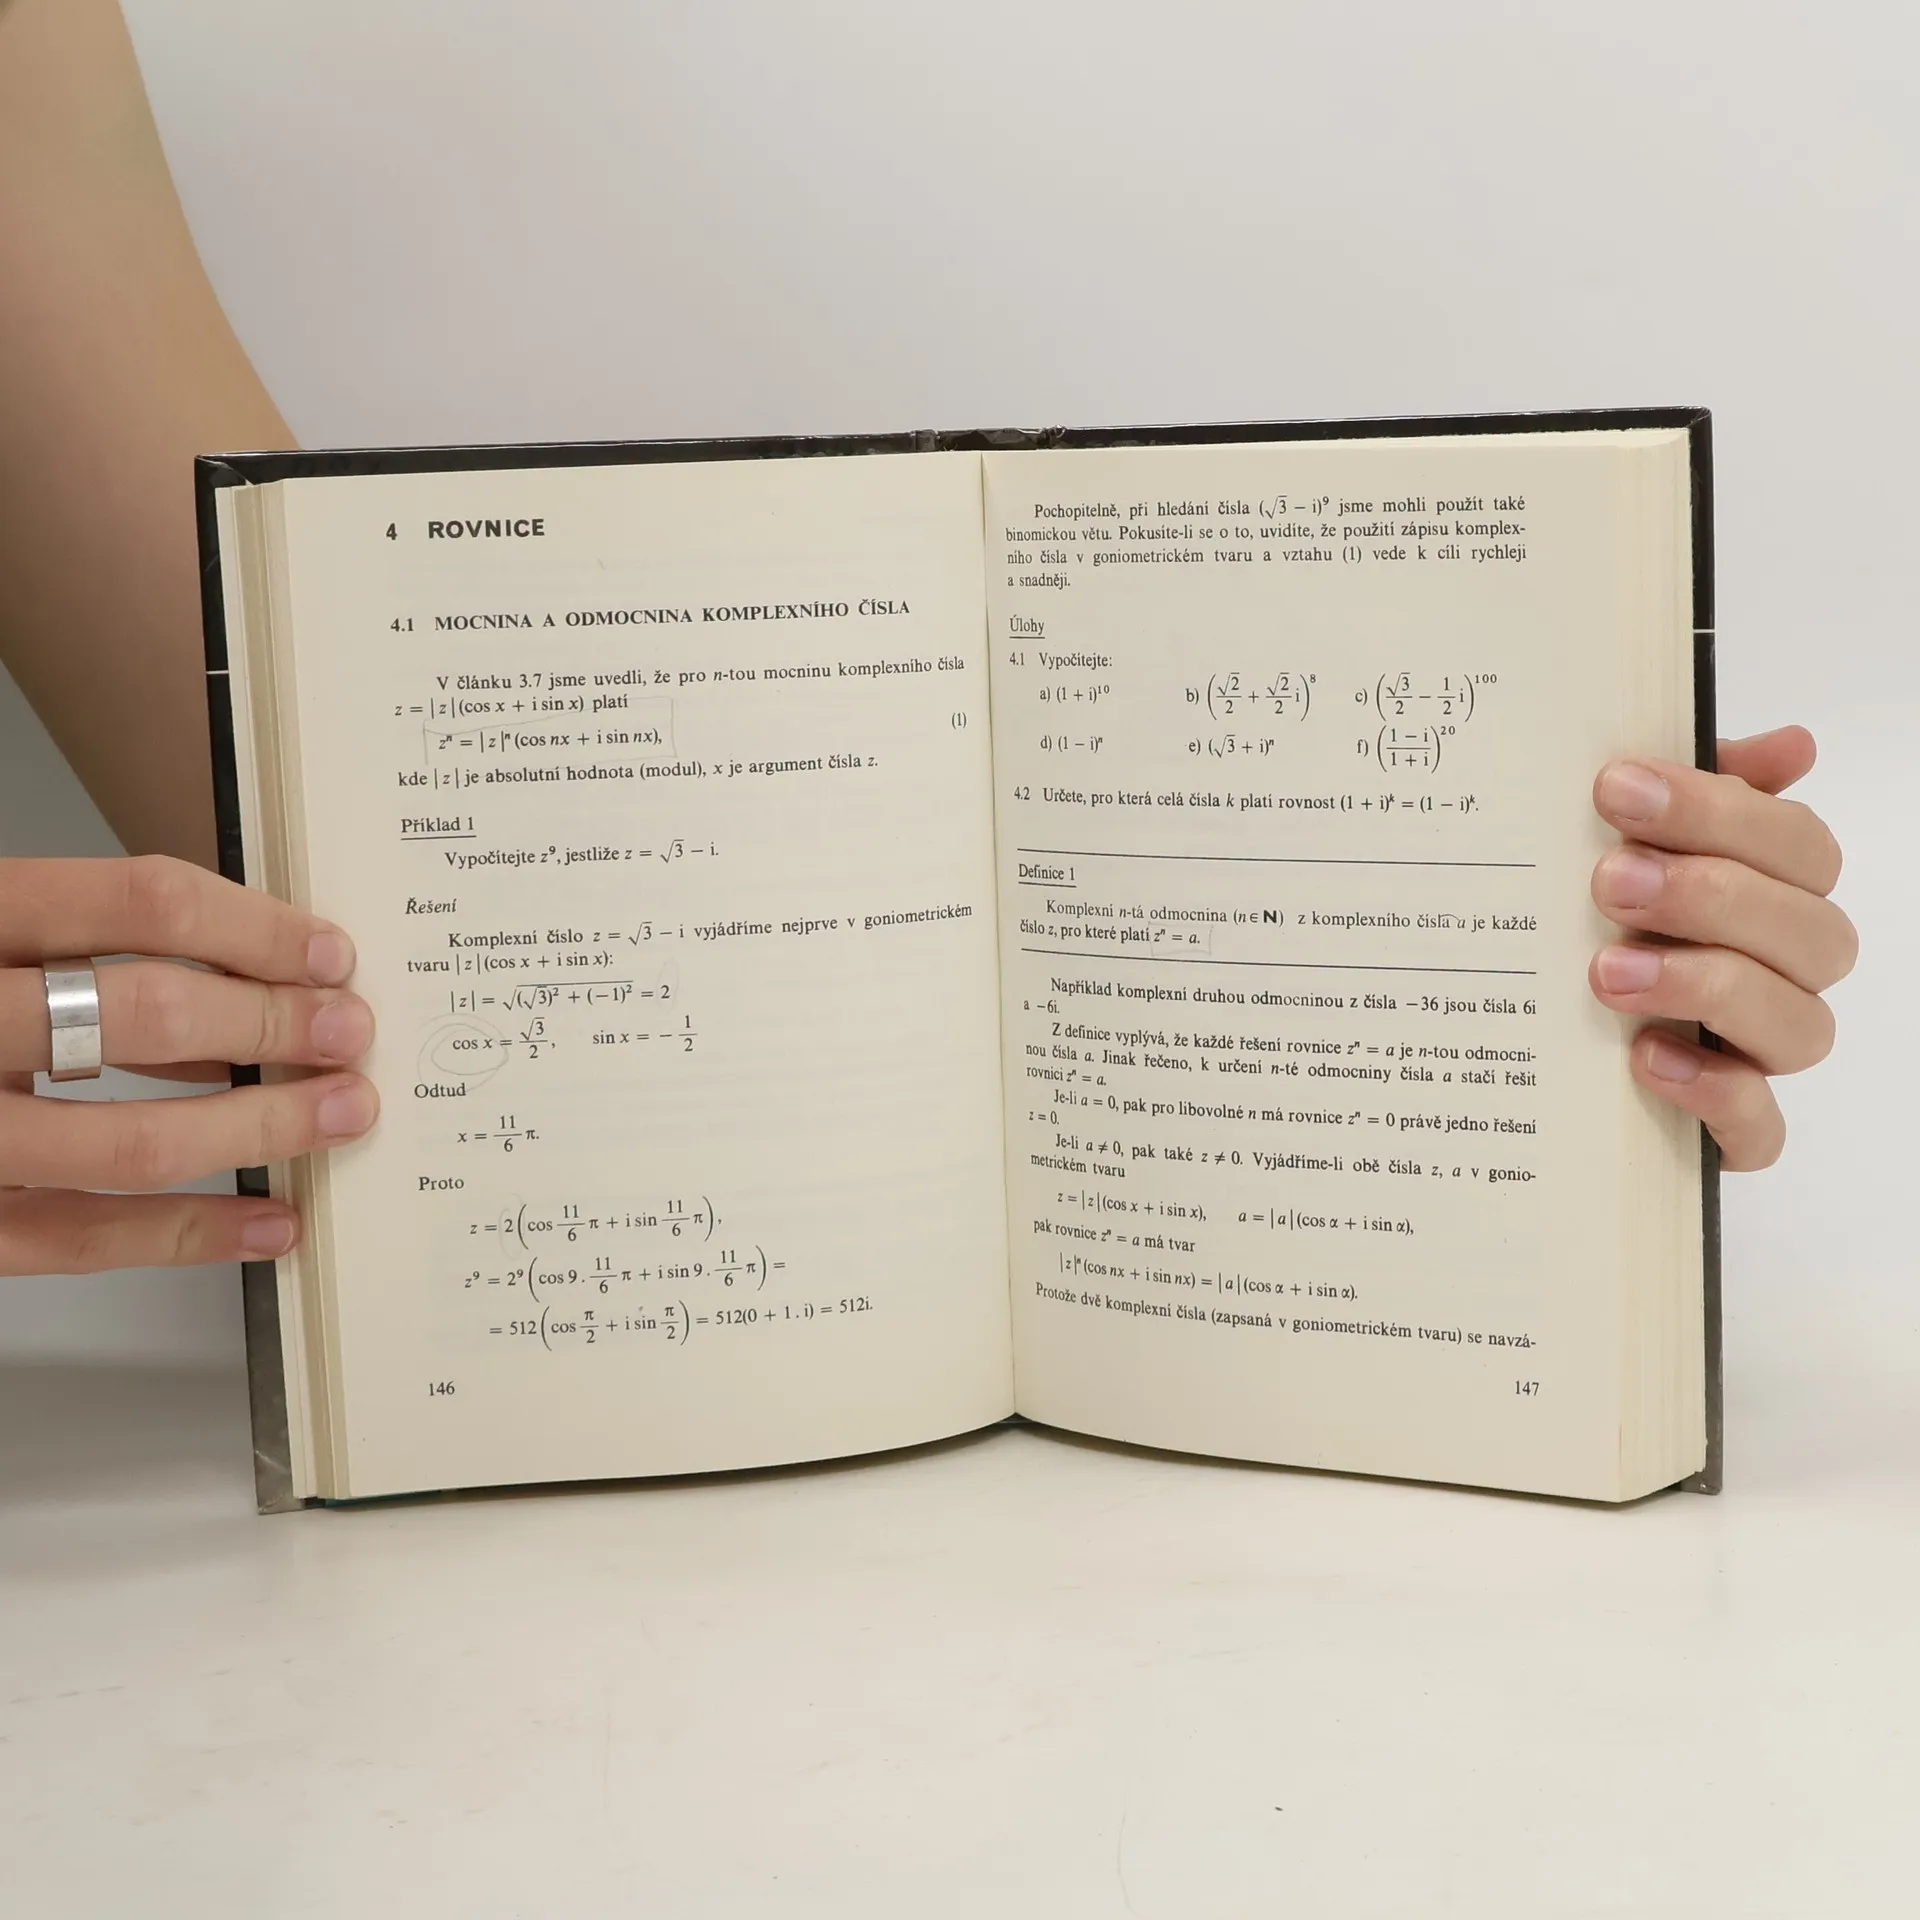 4 ROVNICE
4.1 MOCNINA A ODMOCNINA KOMPLEXNÍHO ČÍSLA
V článku 3.7 jsme uvedli, že pro n-tou mocninu komplexního čísla
z = |z|(cos x + i sin x) platí
zⁿ = |z|ⁿ (cos nx + i sin nx), (1)
kde |z| je absolutní hodnota (modul), x je argument čísla z.
Příklad 1
Vypočítejte z⁹, jestliže z = √3 − i.
Řešení
Komplexní číslo z = √3 − i vyjádříme nejprve v goniometrickém
tvaru |z|(cos x + i sin x):
|z| = √((√3)² + (−1)²) = 2
cos x = √3/2, sin x = − 1/2
Odtud
x = 11/6 π.
Proto
z = 2(cos 11/6 π + i sin 11/6 π),
z⁹ = 2⁹(cos 9 . 11/6 π + i sin 9 . 11/6 π) =
= 512(cos π/2 + i sin π/2) = 512(0 + 1 . i) = 512i.
146
Pochopitelně, při hledání čísla (√3 − i)⁹ jsme mohli použít také
binomickou větu. Pokusíte-li se o to, uvidíte, že použití zápisu komplex-
ního čísla v goniometrickém tvaru a vztahu (1) vede k cíli rychleji
a snadněji.
Úlohy
4.1 Vypočítejte:
a) (1 + i)¹⁰ b) (√2/2 + √2/2 i)⁸ c) (√3/2 − 1/2 i)¹⁰⁰
d) (1 − i)ⁿ e) (√3 + i)ⁿ f) ((1 − i)/(1 + i))²⁰
4.2 Určete, pro která celá čísla k platí rovnost (1 + i)ᵏ = (1 − i)ᵏ.
Definice 1
Komplexní n-tá odmocnina (n ∈ N) z komplexního čísla a je každé
číslo z, pro které platí zⁿ = a.
Například komplexní druhou odmocninou z čísla −36 jsou čísla 6i
a −6i.
Z definice vyplývá, že každé řešení rovnice zⁿ = a je n-tou odmocni-
nou čísla a. Jinak řečeno, k určení n-té odmocniny čísla a stačí řešit
rovnici zⁿ = a.
Je-li a = 0, pak pro libovolné n má rovnice zⁿ = 0 právě jedno řešení
z = 0.
Je-li a ≠ 0, pak také z ≠ 0. Vyjádříme-li obě čísla z, a v gonio-
metrickém tvaru
z = |z|(cos x + i sin x), a = |a|(cos α + i sin α),
pak rovnice zⁿ = a má tvar
|z|ⁿ (cos nx + i sin nx) = |a|(cos α + i sin α).
Protože dvě komplexní čísla (zapsaná v goniometrickém tvaru) se navzá-
147